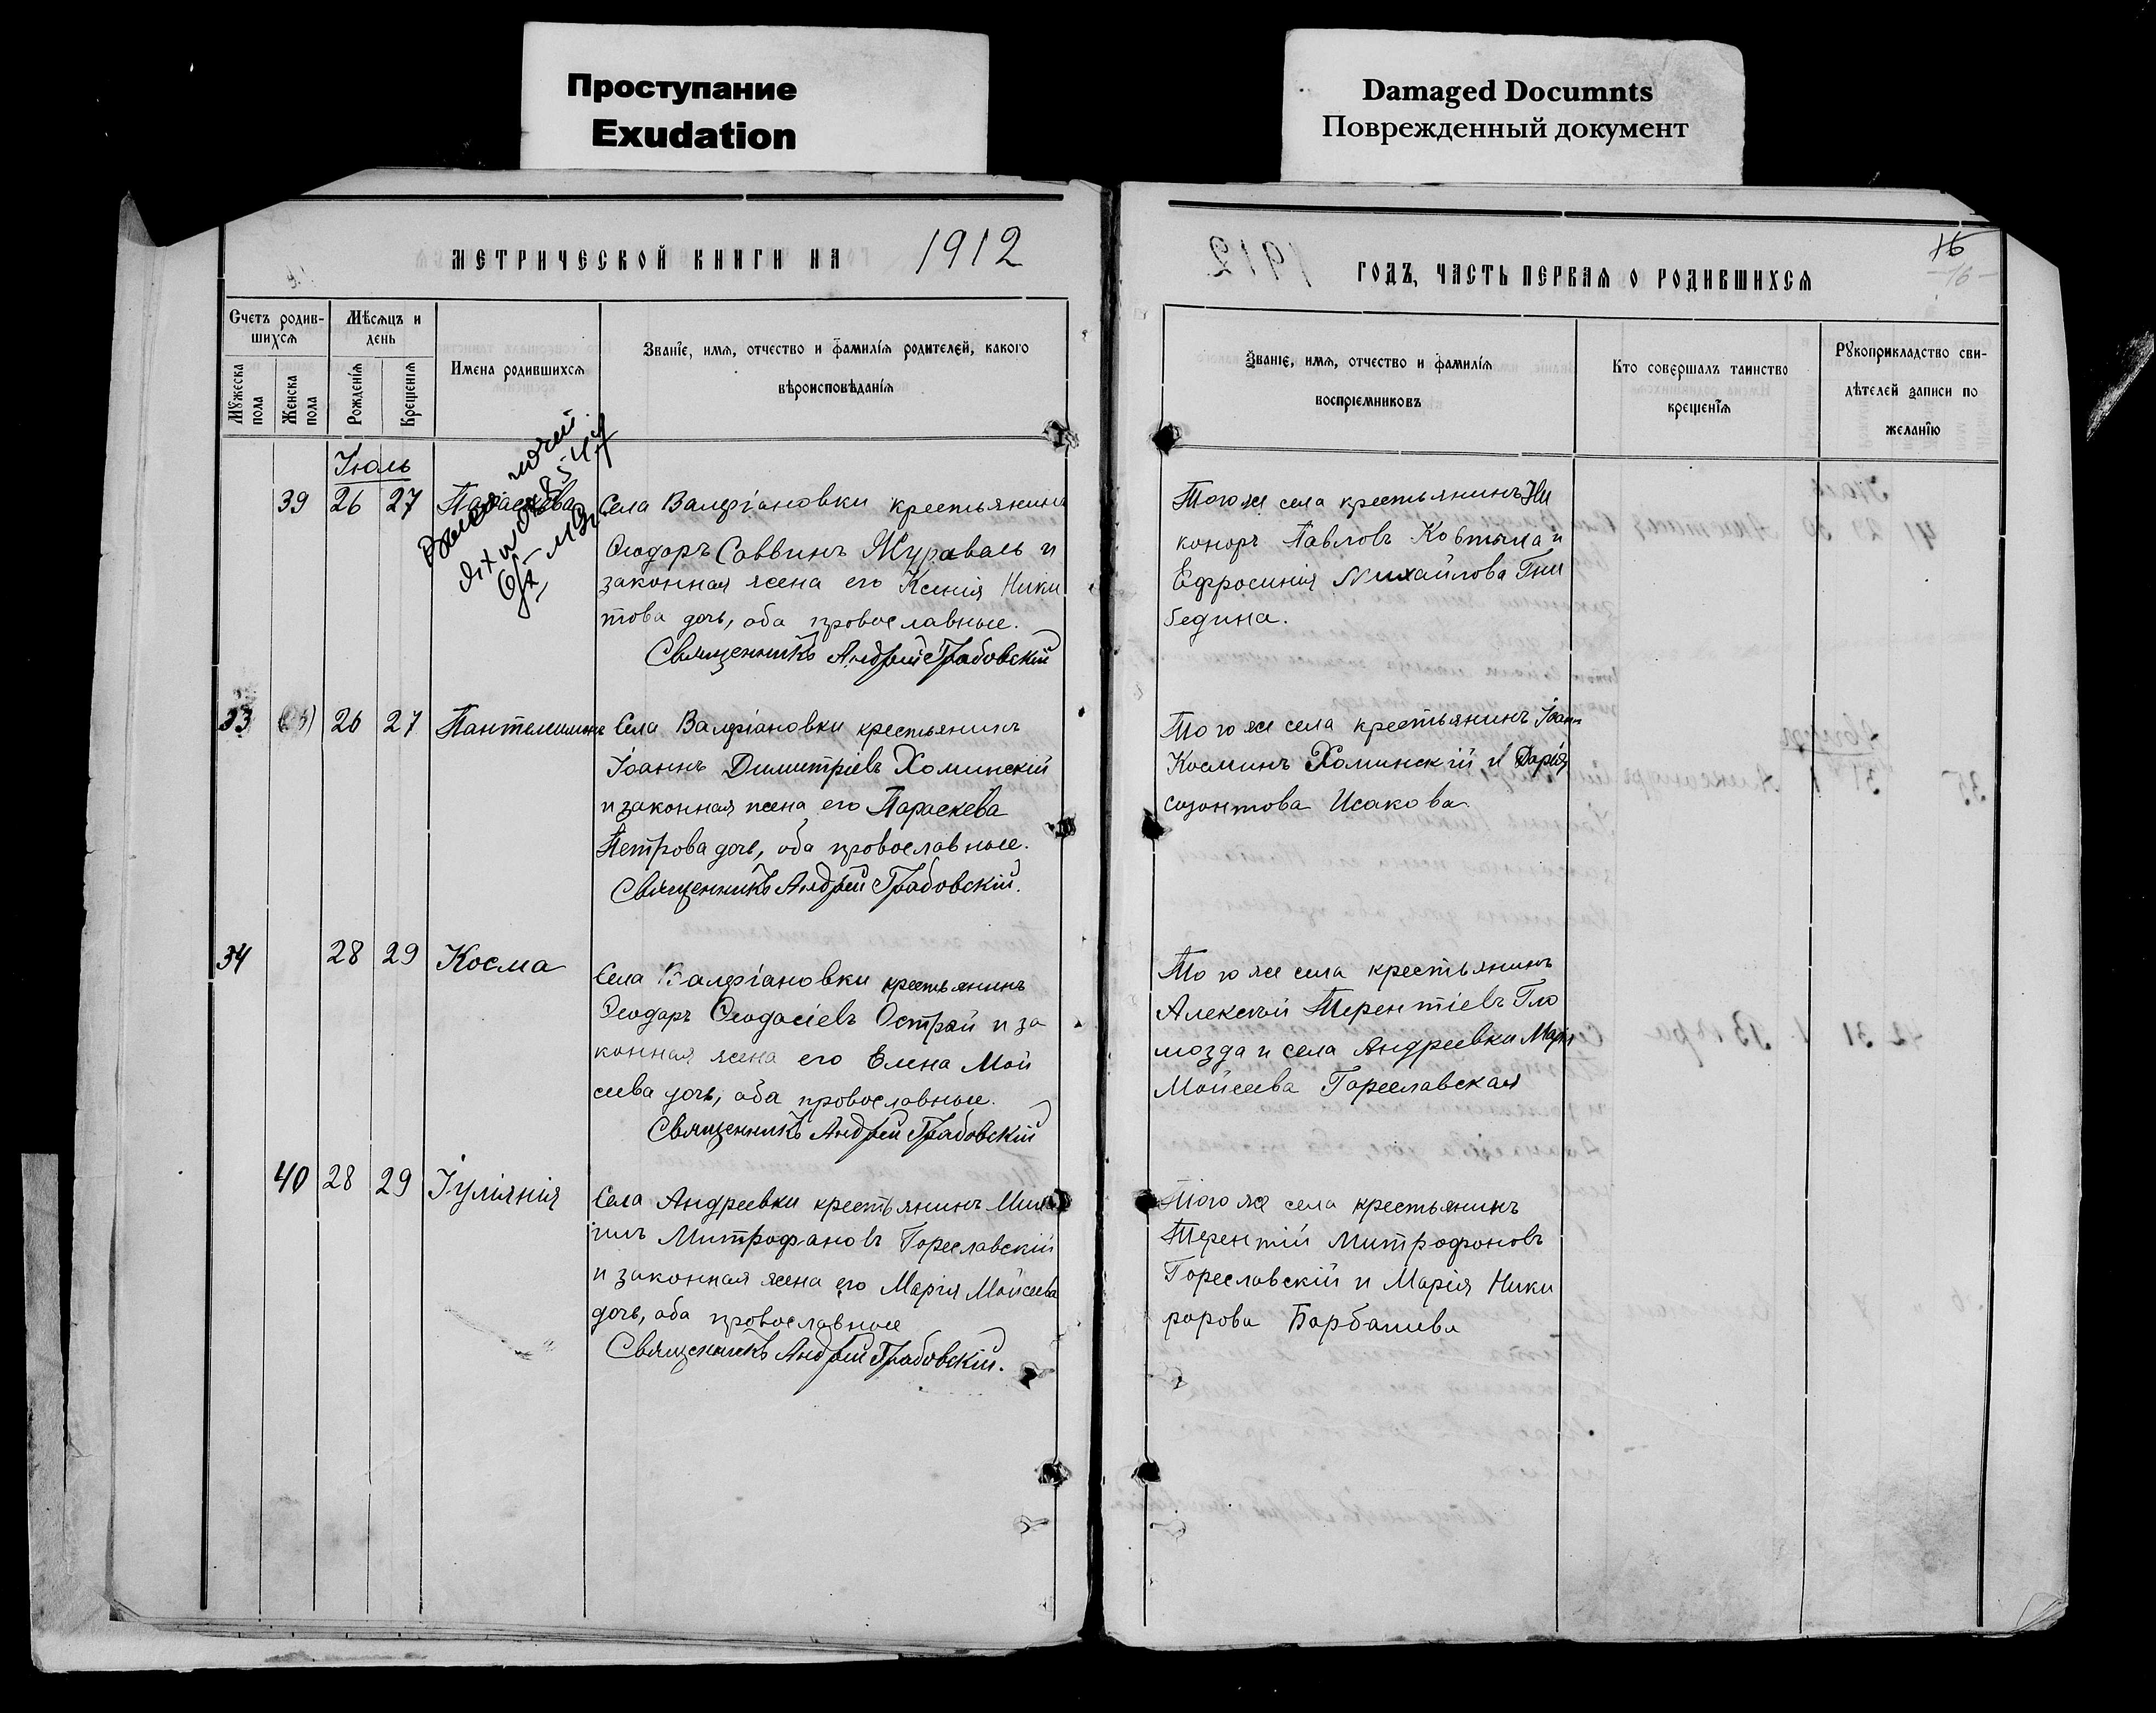 Проступание
Exudation
Damaged Documnts
Поврежденный документ
МЕТРИЧЕСКОЙ КНИГИ НА 1912
Счетъ родив-
шихся
Мѣсяцъ и
день
Мужеска
пола
Женска
пола
Рожденія
Крещенія
Имена родившихся
Званіе, имя, отчество и фамилія родителей, какого
вѣроисповѣданія
Іюль
39 26 27 Параскева
Села Валеріановки крестьянинъ
Ѳеодоръ Саввинъ Журавель и
законная жена его Ксенія Ники
това дочь, оба православные.
Священникъ Андрей Грабовскій
33 26 27 Пантелеимонъ
Села Валеріановки крестьянинъ
Іоаннъ Димитріевъ Хоминскій
и законная жена его Параскева
Петрова дочь, оба православные.
Священникъ Андрей Грабовскій.
34 28 29 Косма
Села Валеріановки крестьянинъ
Ѳеодоръ Ѳеодосіевъ Острый и за
конная жена его Елена Мой
сеева дочь, оба православные.
Священникъ Андрей Грабовскій
40 28 29 Іуліянія
Села Андреевки крестьянинъ Миха
илъ Митрофановъ Гореславскій
и законная жена его Марія Мойсеева
дочь, оба православные
Священникъ Андрей Грабовскій.
16
16
ГОДЪ, ЧАСТЬ ПЕРВАЯ О РОДИВШИХСЯ
Званіе, имя, отчество и фамилія
воспріемниковъ
Кто совершалъ таинство
крещенія
Рукоприкладство сви-
дѣтелей записи по
желанію
Того же села крестьянинъ Ни
каноръ Павловъ Ковтыла и
Ефросинія Михайлова Гни
бедина.
Того же села крестьянинъ Іоаннъ
Косминъ Хоминскій и Дарія
Созонтова Исакова.
Того же села крестьянинъ
Алексѣй Терентіевъ Гло
мозда и села Андреевки Марія
Мойсеева Гореславская
Того же села крестьянинъ
Терентій Митрофановъ
Гореславскій и Марія Ники
форова Барбашева